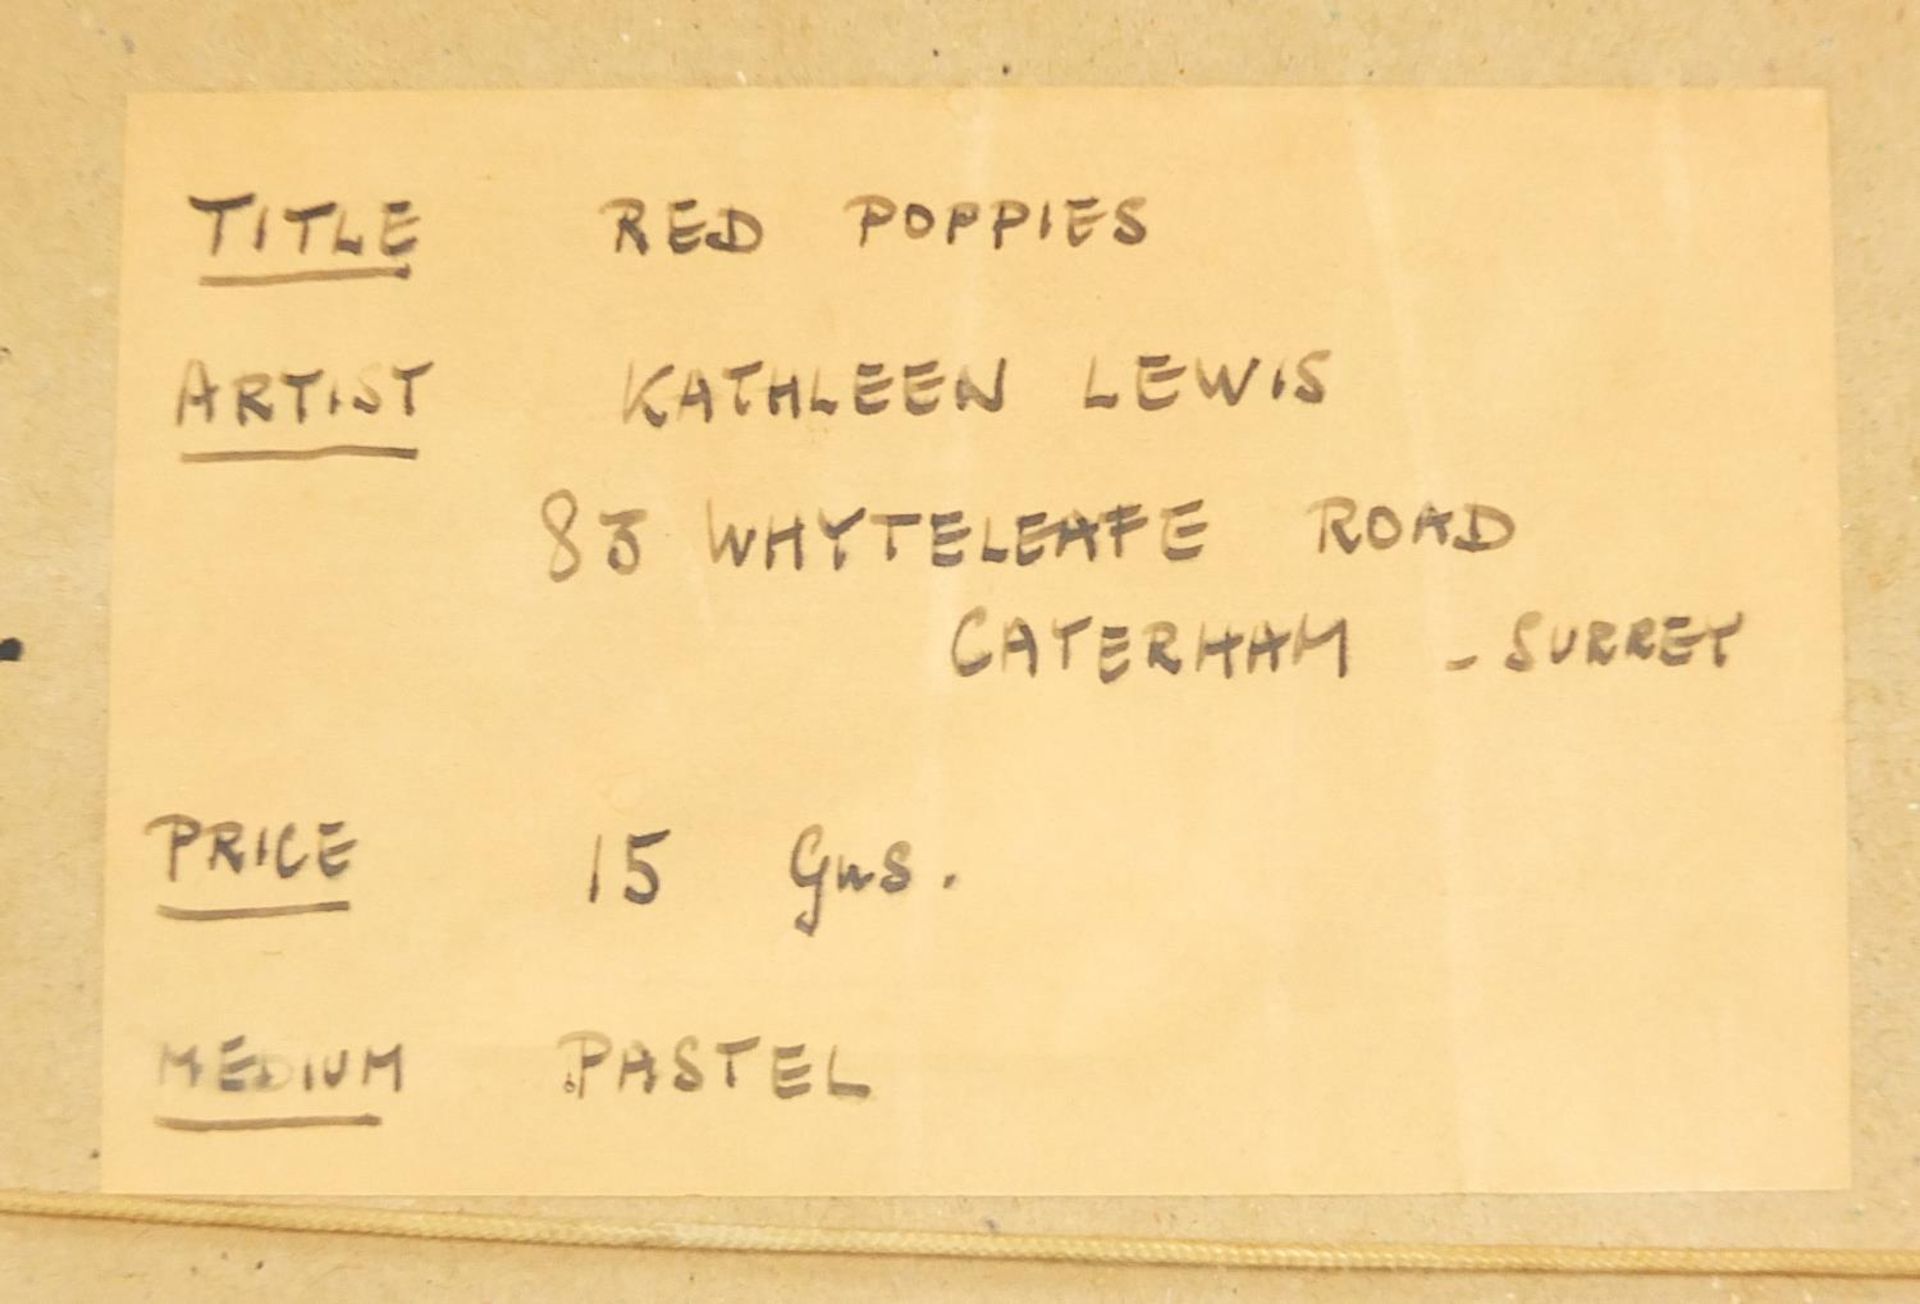 TITLE RED POPPIES
ARTIST KATHLEEN LEWIS
83 WHYTELEAFE ROAD
CATERHAM - SURREY
PRICE 15 Gns.
MEDIUM PASTEL